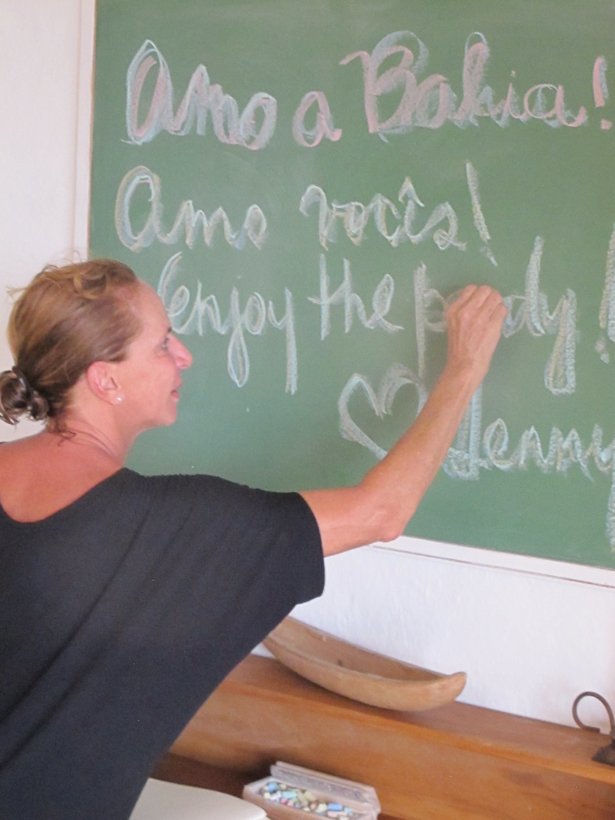 Amo a Bahia!
Amo vocês!
Enjoy the
Jenny